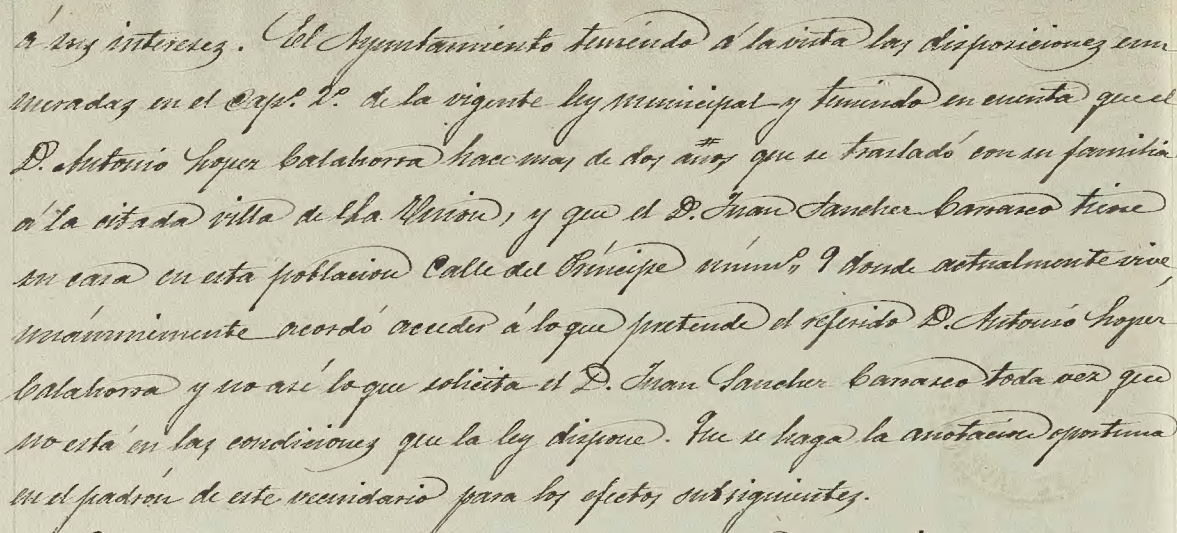 á sus intereses. El Ayuntamiento teniendo á la vista las disposiciones enu
meradas en el Cap.º 2.º de la vigente ley municipal y teniendo en cuenta que el
D. Antonio Lopez Calahorra hace mas de dos años que se trasladó con su familia
á la citada villa de La Union, y que el D. Juan Sanchez Carrasco tiene
su casa en esta poblacion Calle del Príncipe núm.º 9 donde actualmente vive,
unánimemente acordó acceder á lo que pretende el referido D. Antonio Lopez
Calahorra y no así lo que solicita el D. Juan Sanchez Carrasco toda vez que
no está en las condiciones que la ley dispone. Que se haga la anotacion oportuna
en el padron de este vecindario para los efectos subsiguientes.